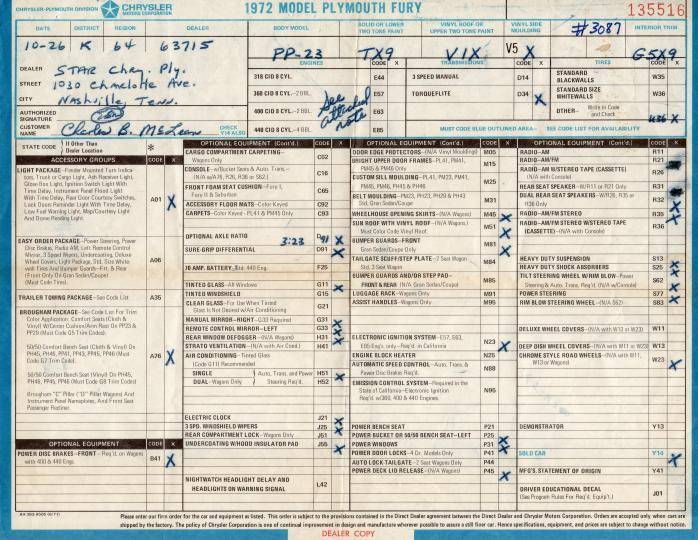 CHRYSLER-PLYMOUTH DIVISION CHRYSLER MOTORS CORPORATION
1972 MODEL PLYMOUTH FURY
135516
DATE DISTRICT REGION DEALER BODY MODEL SOLID OR LOWER TWO TONE PAINT VINYL ROOF OR UPPER TWO TONE PAINT VINYL SIDE MOULDING #3087 INTERIOR TRIM
10-26 K 64 63715 PP-23 TX9 V1X V5 X G5X9
DEALER STAR Chry. Ply.
STREET 1030 Charlotte Ave.
CITY Nashville, Tenn.
AUTHORIZED SIGNATURE
CUSTOMER NAME Charles B. McLean
CHECK Y14 ALSO
ENGINES CODE X
318 CID 8 CYL. E44
360 CID 8 CYL.-2 BBL. E57
400 CID 8 CYL.-2 BBL. E63
440 CID 8 CYL.-4 BBL. E85
See attached note
TRANSMISSIONS CODE X
3 SPEED MANUAL D14
TORQUEFLITE D34 X
TIRES CODE X
STANDARD BLACKWALLS W35
STANDARD SIZE WHITEWALLS W36
OTHER- Write in Code and Check
MUST CODE BLUE OUTLINED AREA - SEE CODE LIST FOR AVAILABILITY
STATE CODE If Other Than Dealer Location
ACCESSORY GROUPS CODE X
LIGHT PACKAGE-Fender Mounted Turn Indicators, Trunk or Cargo Light, Ash Receiver Light, Glove Box Light, Ignition Switch Light With Time Delay, Instrument Panel Flood Light With Time Delay, Rear Door Courtesy Switches, Lock Doors Reminder Light With Time Delay, Low Fuel Warning Light, Map/Courtesy Light And Dome Reading Light. A01 X
EASY ORDER PACKAGE-Power Steering, Power Disc Brakes, Radio AM, Left Remote Control Mirror, 3 Speed Wipers, Undercoating, Deluxe Wheel Covers, Light Package, Std. Size Whitewall Tires And Bumper Guards-Frt. & Rear (Front Only On Gran Sedan/Coupe) (Must Code Tires). A06
TRAILER TOWING PACKAGE-See Code List A35
BROUGHAM PACKAGE-See Code List For Trim Color Application: Comfort Seats (Cloth & Vinyl) W/Center Cushion/Arm Rest On PP23 & PP29 (Must Code G5 Trim Codes). A76 X
50/50 Comfort Bench Seat (Cloth & Vinyl) On PH45, PH46, PP41, PP43, PP45, PP46 (Must Code G7 Trim Code).
50/50 Comfort Bench Seat (Vinyl) On PH45, PH46, PP45, PP46 (Must Code G8 Trim Codes)
Brougham "C" Pillar ("D" Pillar Wagons) And Instrument Panel Nameplates, And Front Seat Passenger Recliner.
OPTIONAL EQUIPMENT CODE X
POWER DISC BRAKES-FRONT-Req'd. on Wagons with 400 & 440 Eng. B41 X
OPTIONAL EQUIPMENT (Cont'd.) CODE X
CARGO COMPARTMENT CARPETING-Wagons Only C02
CONSOLE-w/Bucket Seats & Auto. Trans. C16
FRONT FOAM SEAT CUSHION-Fury I, Fury II & Suburban C65
ACCESSORY FLOOR MATS-Color Keyed C92
CARPETS-Color Keyed-PL41 & PM45 Only C93
OPTIONAL AXLE RATIO 3:23 D91 X
SURE-GRIP DIFFERENTIAL D91 X
70 AMP. BATTERY-Std. 440 Eng. F25
TINTED GLASS-All Windows G11 X
TINTED WINDSHIELD G15
CLEAR GLASS-For Use When Tinted Glass Is Not Desired w/Air Conditioning G21
MANUAL MIRROR-RIGHT-G33 Required G31 X
REMOTE CONTROL MIRROR-LEFT G33 X
REAR WINDOW DEFOGGER-(N/A With H31) H31 X
STRATO VENTILATION-(N/A with Air Cond.) H41
AIR CONDITIONING-Tinted Glass (Code G11) Recommended
SINGLE Auto. Trans. and Power H51 X
DUAL-Wagons Only Steering Req'd. H52
ELECTRIC CLOCK J21 X
3 SPD. WINDSHIELD WIPERS J25 X
REAR COMPARTMENT LOCK-Wagons Only J51
UNDERCOATING W/HOOD INSULATOR PAD J55 X
NIGHTWATCH HEADLIGHT DELAY AND HEADLIGHTS ON WARNING SIGNAL L42
OPTIONAL EQUIPMENT (Cont'd.) CODE X
DOOR EDGE PROTECTORS-(N/A Vinyl Mouldings) M05
BRIGHT UPPER DOOR FRAMES-PL41, PM41, PM45 & PM46 Only M15
CUSTOM SILL MOULDING-PL41, PM41, PM45, PM46, PH45 & PH46 M25
BELT MOULDING-PM23, PH23, PH29 & PH43 Std. Gran Sedan/Coupe M31
WHEELHOUSE OPENING SKIRTS-(N/A Wagons) M45 X
SUN ROOF WITH VINYL ROOF-(N/A Wagons) Must Color Code Vinyl Roof. M51 X
BUMPER GUARDS-FRONT Gran Sedan/Coupe Only M81 X
TAILGATE SCUFF/STEP PLATE-2 Seat Wagon Std. 3 Seat Wagon M84
BUMPER GUARDS AND/OR STEP PAD-FRONT & REAR (N/A Gran Sedan/Coupe) M85
LUGGAGE RACK-Wagons Only M91
ASSIST HANDLES-Wagons Only M95
ELECTRONIC IGNITION SYSTEM-E57, E63, E85 Eng's. only-Req'd. in California N23 X
ENGINE BLOCK HEATER N25
AUTOMATIC SPEED CONTROL-Auto. Trans. & Power Disc Brakes Req'd. N88 X
EMISSION CONTROL SYSTEM-Required in the State of California-Electronic Ignition Req. w/360, 400 & 440 Engines. N95
POWER BENCH SEAT P21
POWER BUCKET OR 50/50 BENCH SEAT-LEFT P25 X
POWER WINDOWS P31 X
POWER DOOR LOCKS-4 Dr. Models Only P41
AUTO LOCK TAILGATE-2 Seat Wagons Only P44
POWER DECK LID RELEASE-(N/A Wagons) P45 X
OPTIONAL EQUIPMENT (Cont'd.) CODE X
RADIO-AM R11
RADIO-AM/FM R21
RADIO-AM W/STEREO TAPE (CASSETTE) (N/A with Console) R26
REAR SEAT SPEAKER-W/R11 or R21 Only R31
DUAL REAR SEAT SPEAKERS-W/R26, R35 or R36 Only R32
RADIO-AM/FM STEREO R35
RADIO-AM/FM STEREO W/STEREO TAPE (CASSETTE)-(N/A with Console) R36
HEAVY DUTY SUSPENSION S13
HEAVY DUTY SHOCK ABSORBERS S25 X
TILT STEERING WHEEL W/RIM BLOW-Power Steering & Auto. Trans. Req'd. (N/A w/Console) S62 X
POWER STEERING S77 X
RIM BLOW STEERING WHEEL (N/A S62) S83
DELUXE WHEEL COVERS-(N/A with W13 or W23) W11
DEEP DISH WHEEL COVERS-(N/A with W11 or W23) W13
CHROME STYLE ROAD WHEELS-(N/A with W11, W13 or Wagon) W23 X
DEMONSTRATOR Y13
SOLD CAR Y14 X
MFG'S. STATEMENT OF ORIGIN Y41
DRIVER EDUCATIONAL DECAL (See Program Rules For Req'd. Equip't.) J01
Please enter our firm order for the car and equipment as listed. This order is subject to the provisions contained in the Direct Dealer Agreement between the Direct Dealer and Chrysler Motors Corporation. Orders accepted, but not cars shipped by the factory. The policy of Chrysler Corporation is one of continual improvement in design and manufacture wherever possible to assure a still finer car. Hence specifications, equipment, and prices are subject to change without notice.
DEALER COPY